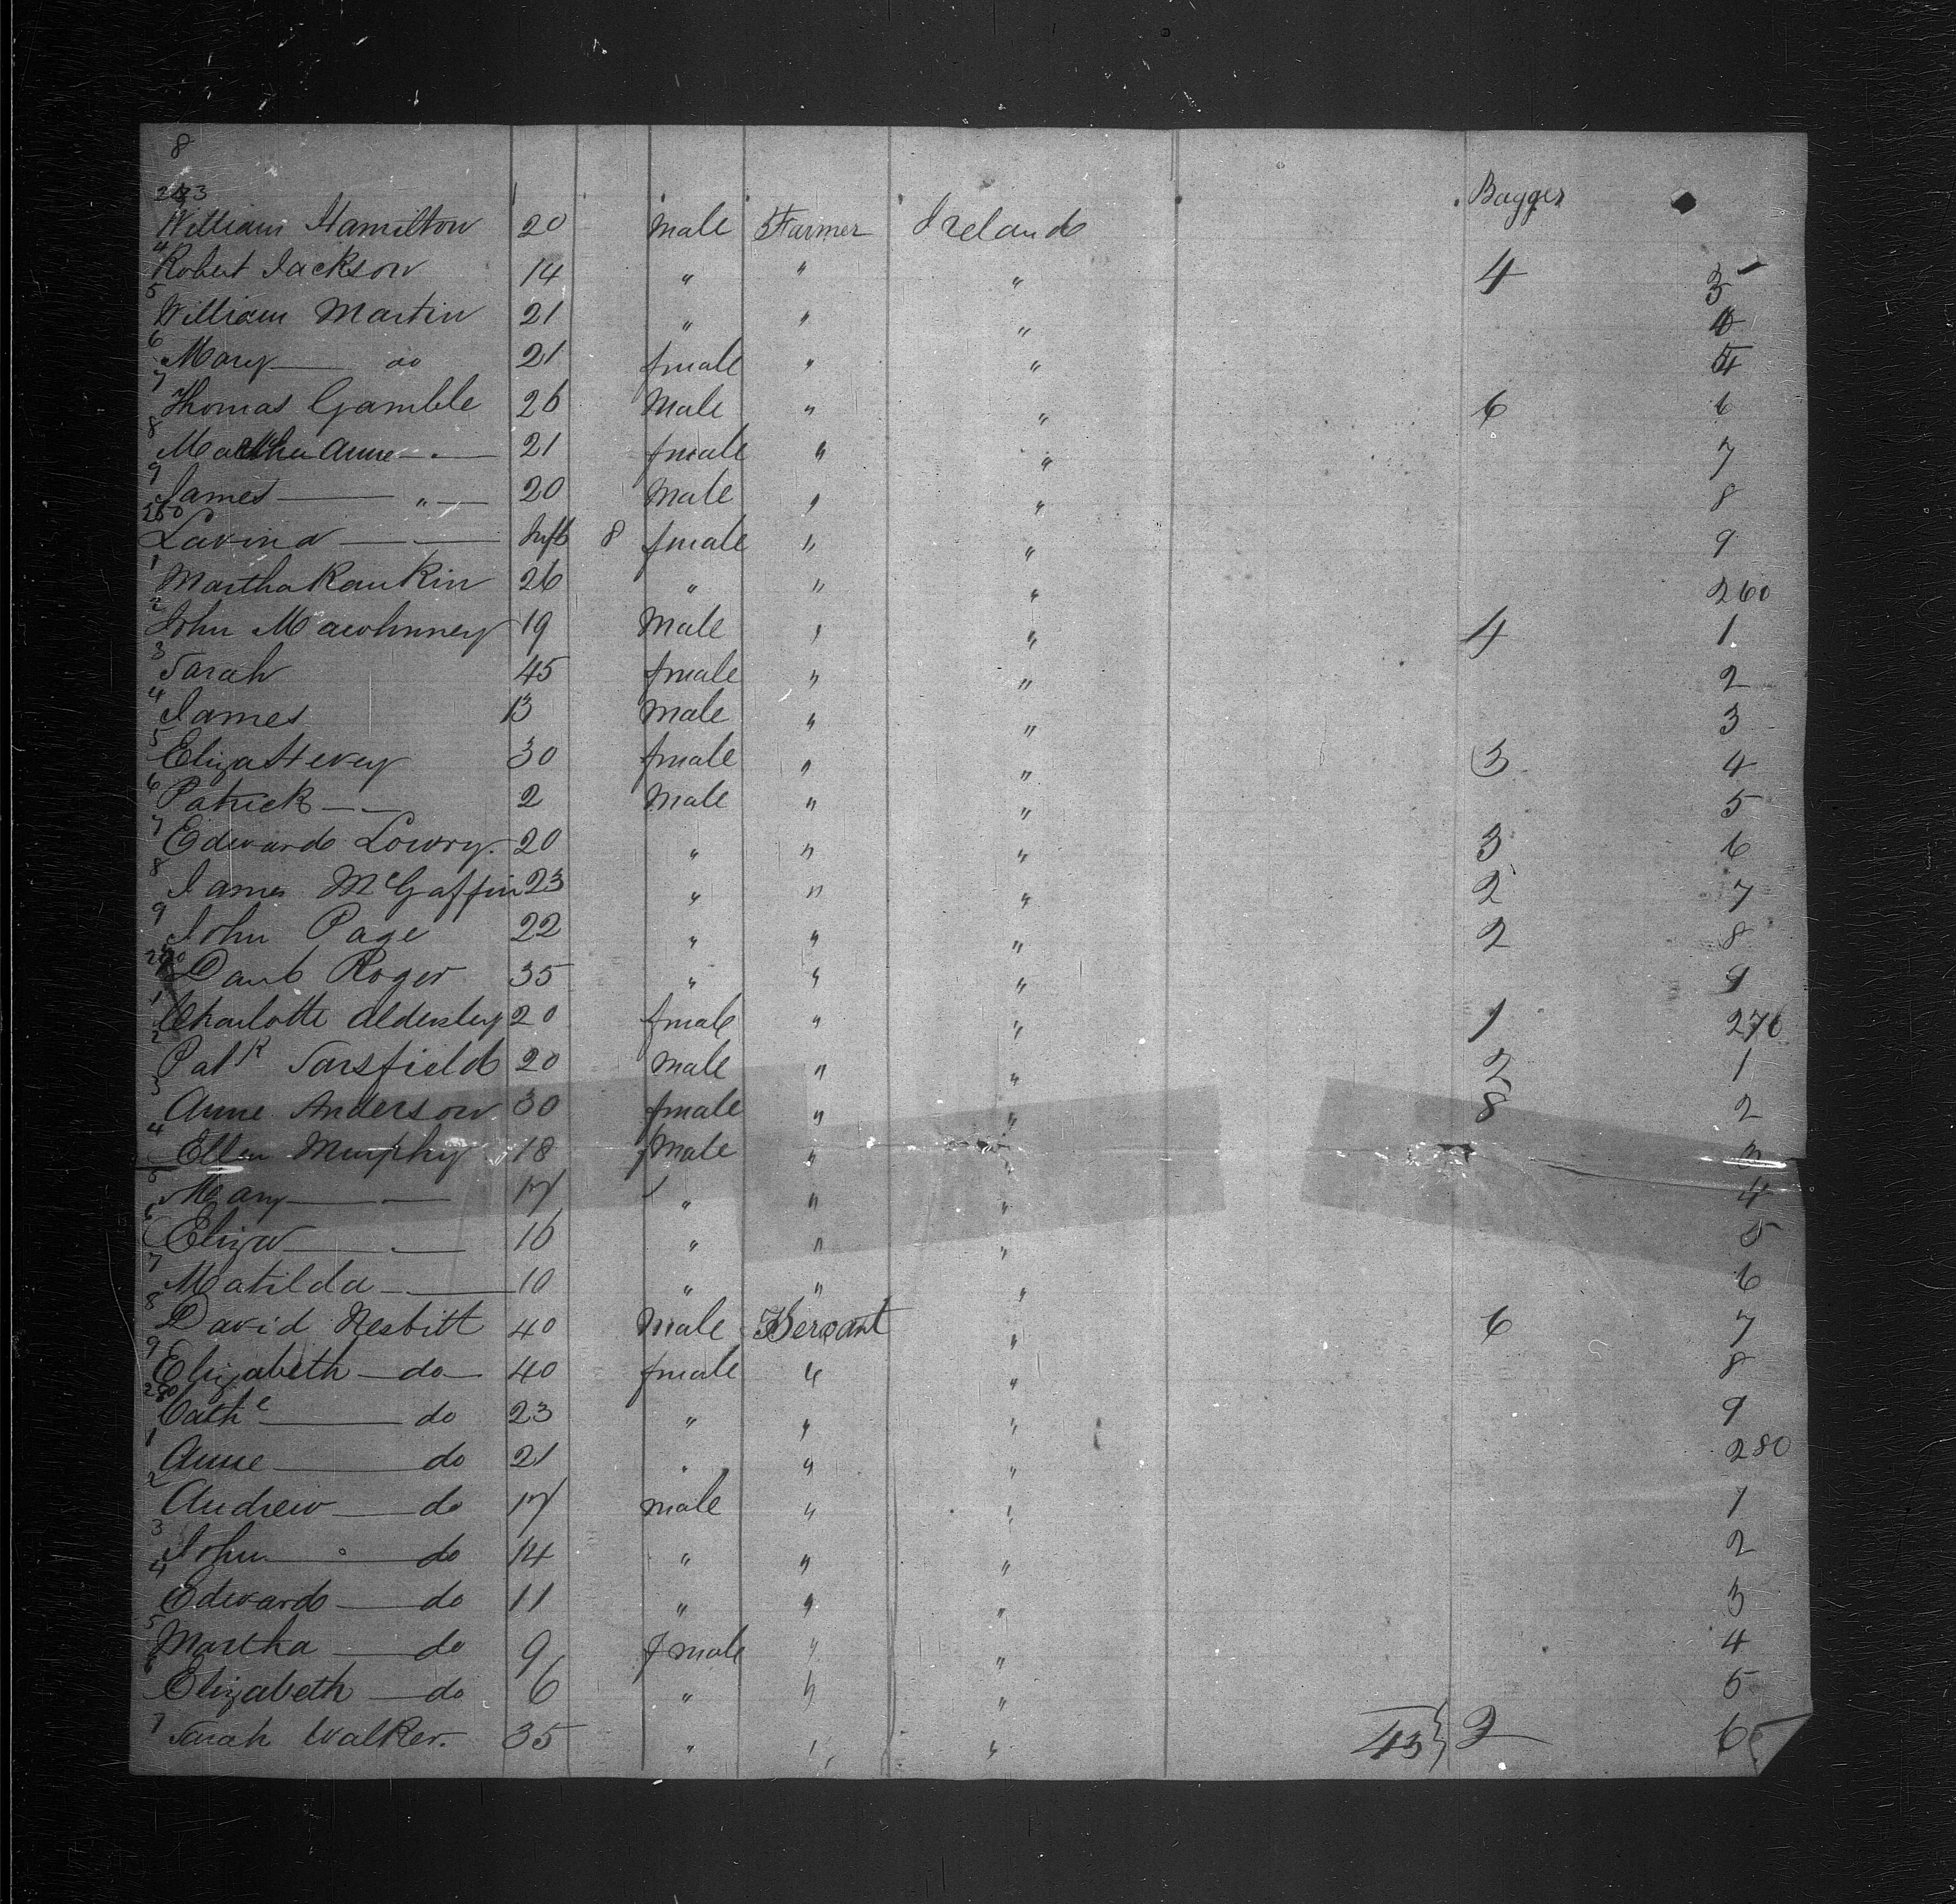 8
Bagges
243
William Hamilton 20 Male Farmer Ireland
4 Robert Jackson 14 " " " 4 3
5 William Martin 21 " " " 4
6 Mary — do 21 female " "
7 Thomas Gamble 26 Male " " 6 6
8 Martha Anne — 21 female " " 7
9 James — " — 20 Male " " 8
250 Lavina — — Inft 8 female " " 9
1 Martha Rankin 26 " " " 260
2 John Mawhinney 19 Male " " 4 1
3 Sarah 45 female " " 2
4 James 13 Male " " 3
5 Eliza Hevey 30 female " " 3 4
6 Patrick — — 2 Male " " 5
7 Edward Lowry. 20 " " " 3 6
8 James McGaffin 23 " " " 2 7
9 John Page 22 " " " 2 8
Roger 35 " " " 9
1 Charlotte Aldersley 20 female " " 1 270
2 Patk Sarsfield 20 male " " 2 1
3 Anne Anderson 30 female " " 8 2
4 Ellen Murphy 18 fmale " " 3
5 Mary — — 17 " " " 4
6 Eliza — — 16 " " " 5
7 Matilda — 10 " " " 6
8 David Nesbitt 40 Male Servant " 6 7
9 Elizabeth — do — 40 female " " 8
280 Cathe — do 23 " " " 9
1 Anne — do 21 " " " 280
2 Andrew — do 17 male " " 1
3 John — do 14 " " " 2
4 Edward — do 11 " " " 3
5 Martha — do 9 Fmale " " 4
6 Elizabeth — do 6 " " " 5
7 Sarah Walker. 35 " " " 43} 2 6